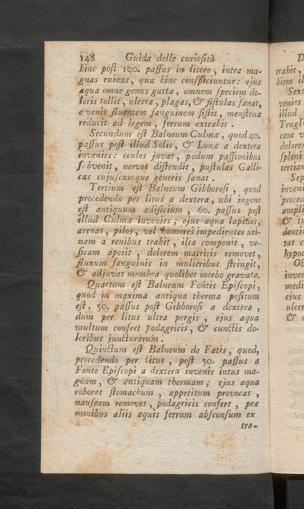 148 Guida delle curiosità
hinc post 100. passus in litore, intra ma-
gnas ruinas, quæ hinc conspiciuntur: ejus
aqua omne genus guttæ, omnem speciem do-
loris tollit, ulcera, plagas, & fistulas sanat,
e venis fluentem sanguinem sistit, menstrua
reducit ad legem, ferrum extrahit.
Secundum est Balneum Culmæ, quod 40.
passus post illud Solis, & Lunæ a dextera
invenies: oculos juvat, pedum passionibus
subvenit, nervos distendit, pustulas Galli-
cas cujuscumque generis sanat.
Tertium est Balneum Gibborosi, quod
procedendo per litus a dextera, ubi ingens
est antiquum ædificium, 60. passus post
illud Culmæ invenies; ejus aqua lapides,
arenas, pilos, vel humores impedientes uri-
nam a renibus trahit, ilia componit, ve-
sicam aperit, dolorem matricis removet,
fluxum sanguinis in mulieribus stringit,
& adjuvat membra quolibet morbo gravata.
Quartum est Balneum Fontis Episcopi,
quod in maxima antiqua therma positum
est, 50. passus post Gibborosi a dextera,
dum per litus ultra pergis, ejus aqua
multum confert podagricis, & cunctis do-
loribus juncturarum.
Quinctum est Balneum de Fatis, quod,
procedendo per litus, post 50. passus a
Fonte Episcopi a dextera invenis intus ma-
gnam, & antiquam thermam; ejus aqua
roborat stomachum, appetitum provocat,
nauseam removet, podagricis confert, præ
omnibus aliis aquis ferrum absconsum ex
tra-